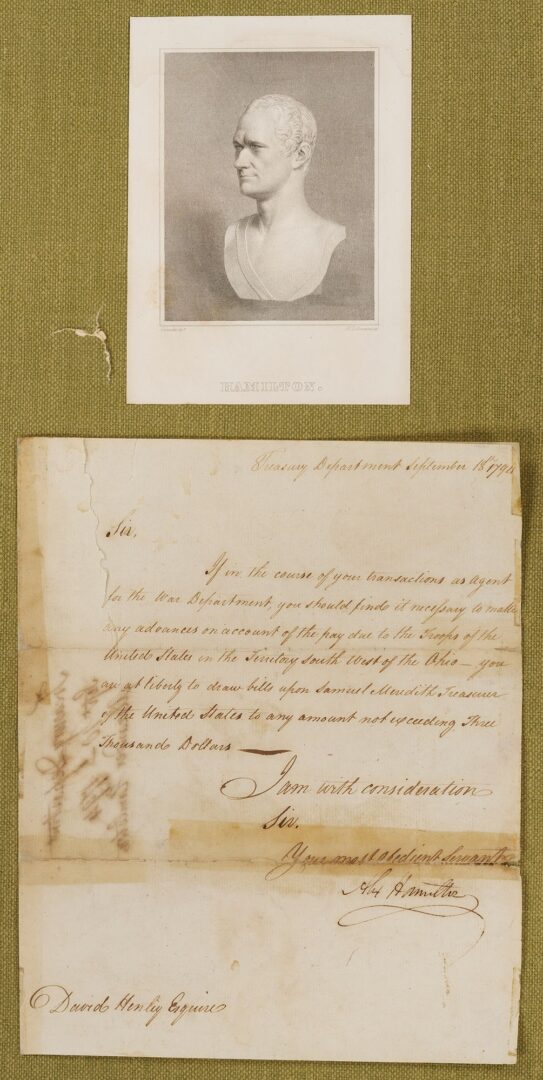 HAMILTON.
Treasury Department September 18th 1794
Sir,
If in the course of your transactions as Agent
for the War Department, you should find it necessary to make
any advances on account of the pay due to the Troops of the
United States in the Territory South West of the Ohio — you
are at liberty to draw bills upon Samuel Meredith Treasurer
of the United States to any amount not exceeding Three
Thousand Dollars —
I am with consideration
Sir,
Your most obedient Servant
Alex Hamilton
David Henley Esquire